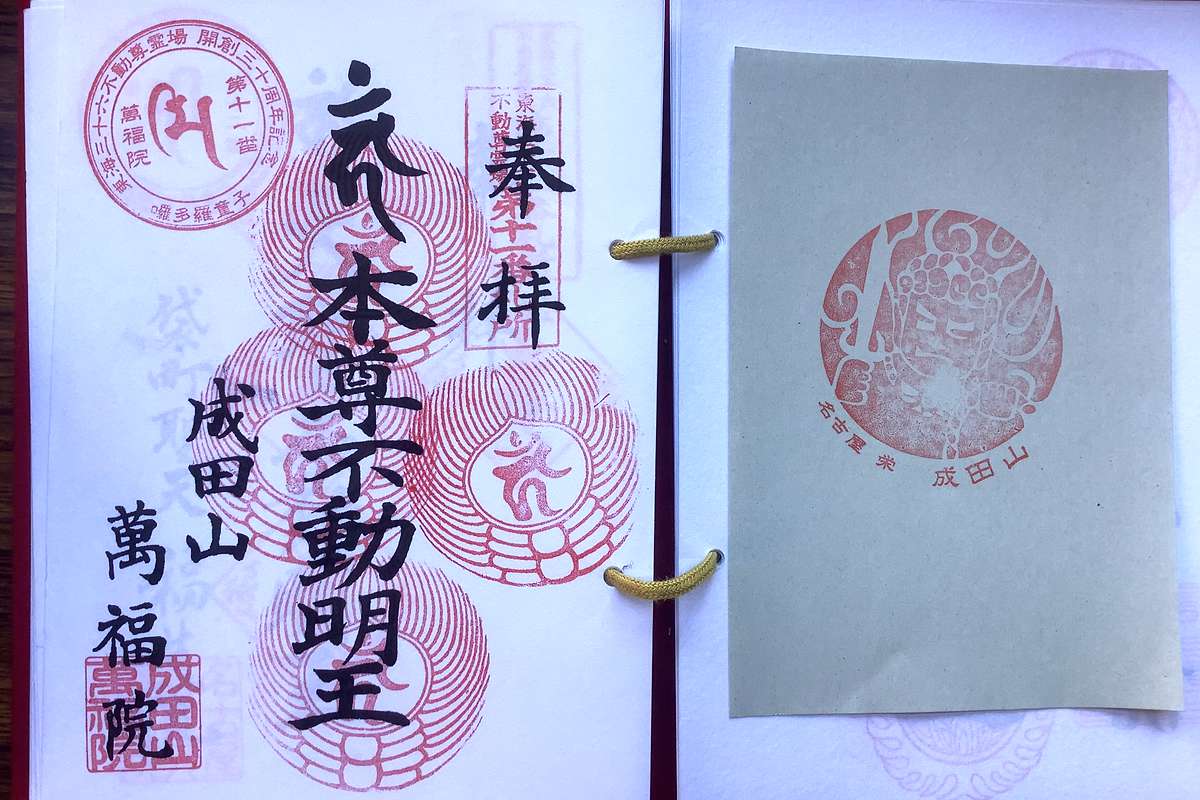 奉拝
本尊不動明王
成田山
萬福院
東海三十六不動尊霊場 開創三十周年記念
第十一番
萬福院
囉多羅童子
東海
不動尊霊場
第十一番札所
成田山
萬福院
名古屋 栄 成田山